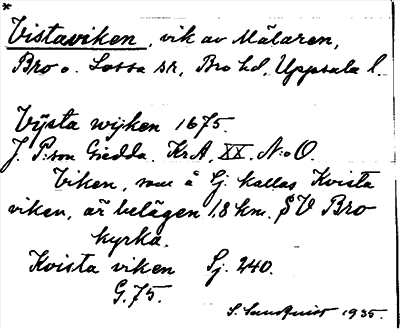 *
Vistaviken, vik av Mälaren,
Bro o. Lossa sr, Bro hd, Uppsala l.
Vÿsta wÿken 1675.
J. P:son Giedda. KrA. XX. N:o O.
Viken, som å Gj. kallas Kvista
viken, är belägen 1,8 km. SV Bro
kyrka.
Kvista viken Gj. 240.
G. 75.
S. Sundquist 1935.